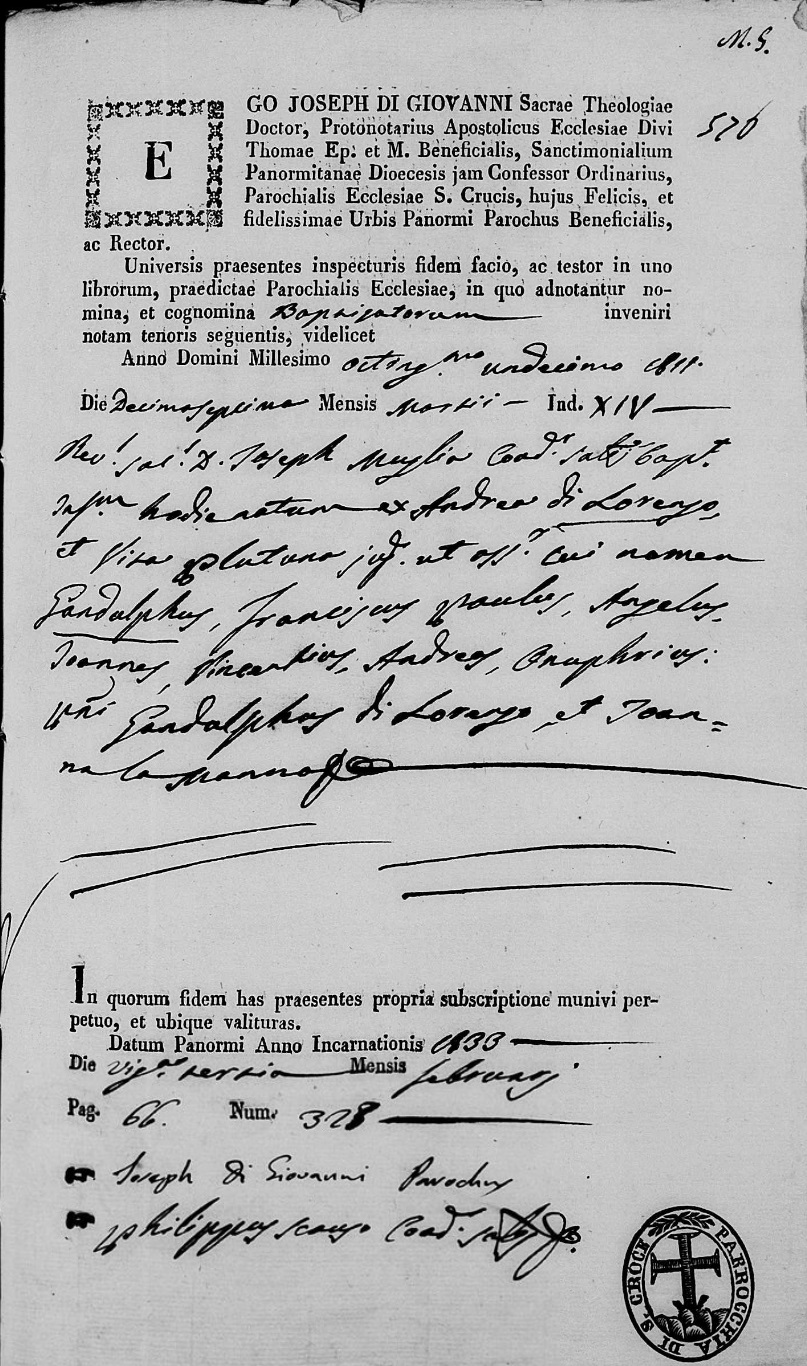 M. G.
576
EGO JOSEPH DI GIOVANNI Sacrae Theologiae
Doctor, Protonotarius Apostolicus Ecclesiae Divi
Thomae Ep: et M. Beneficialis, Sanctimonialium
Panormitanae Dioecesis jam Confessor Ordinarius,
Parochialis Ecclesiae S. Crucis, hujus Felicis, et
fidelissimae Urbis Panormi Parochus Beneficialis,
ac Rector.
Universis praesentes inspecturis fidem facio, ac testor in uno
librorum, praedictae Parochialis Ecclesiae, in quo adnotantur no-
mina, et cognomina Baptizatorum inveniri
notam tenoris seguentis, videlicet
Anno Domini Millesimo octing.mo undecimo 1811.
Die Decimoseptimo Mensis Martii Ind. XIV
Rev. Sac. D. Joseph Muglia Coad.r Bapt.
Inf.m hodie natum ex Andrea di Lorenzo,
et Vita Plutano jug. ut ass.r cui nomen
Gandulphus, Franciscus Paulus, Angelus,
Joannes, Vincentius, Andreas, Onuphrius:
pñi Gandulphus di Lorenzo, et Joan=
na la Manna
In quorum fidem has praesentes propria subscriptione munivi per-
petuo, et ubique valituras.
Datum Panormi Anno Incarnationis 1833
Die vig.mo tertio Mensis februarj
Pag. 66. Num. 328
Joseph di Giovanni Parochus
Philippus Scauso Coad.r
PARROCCHIA DI S. CROCE